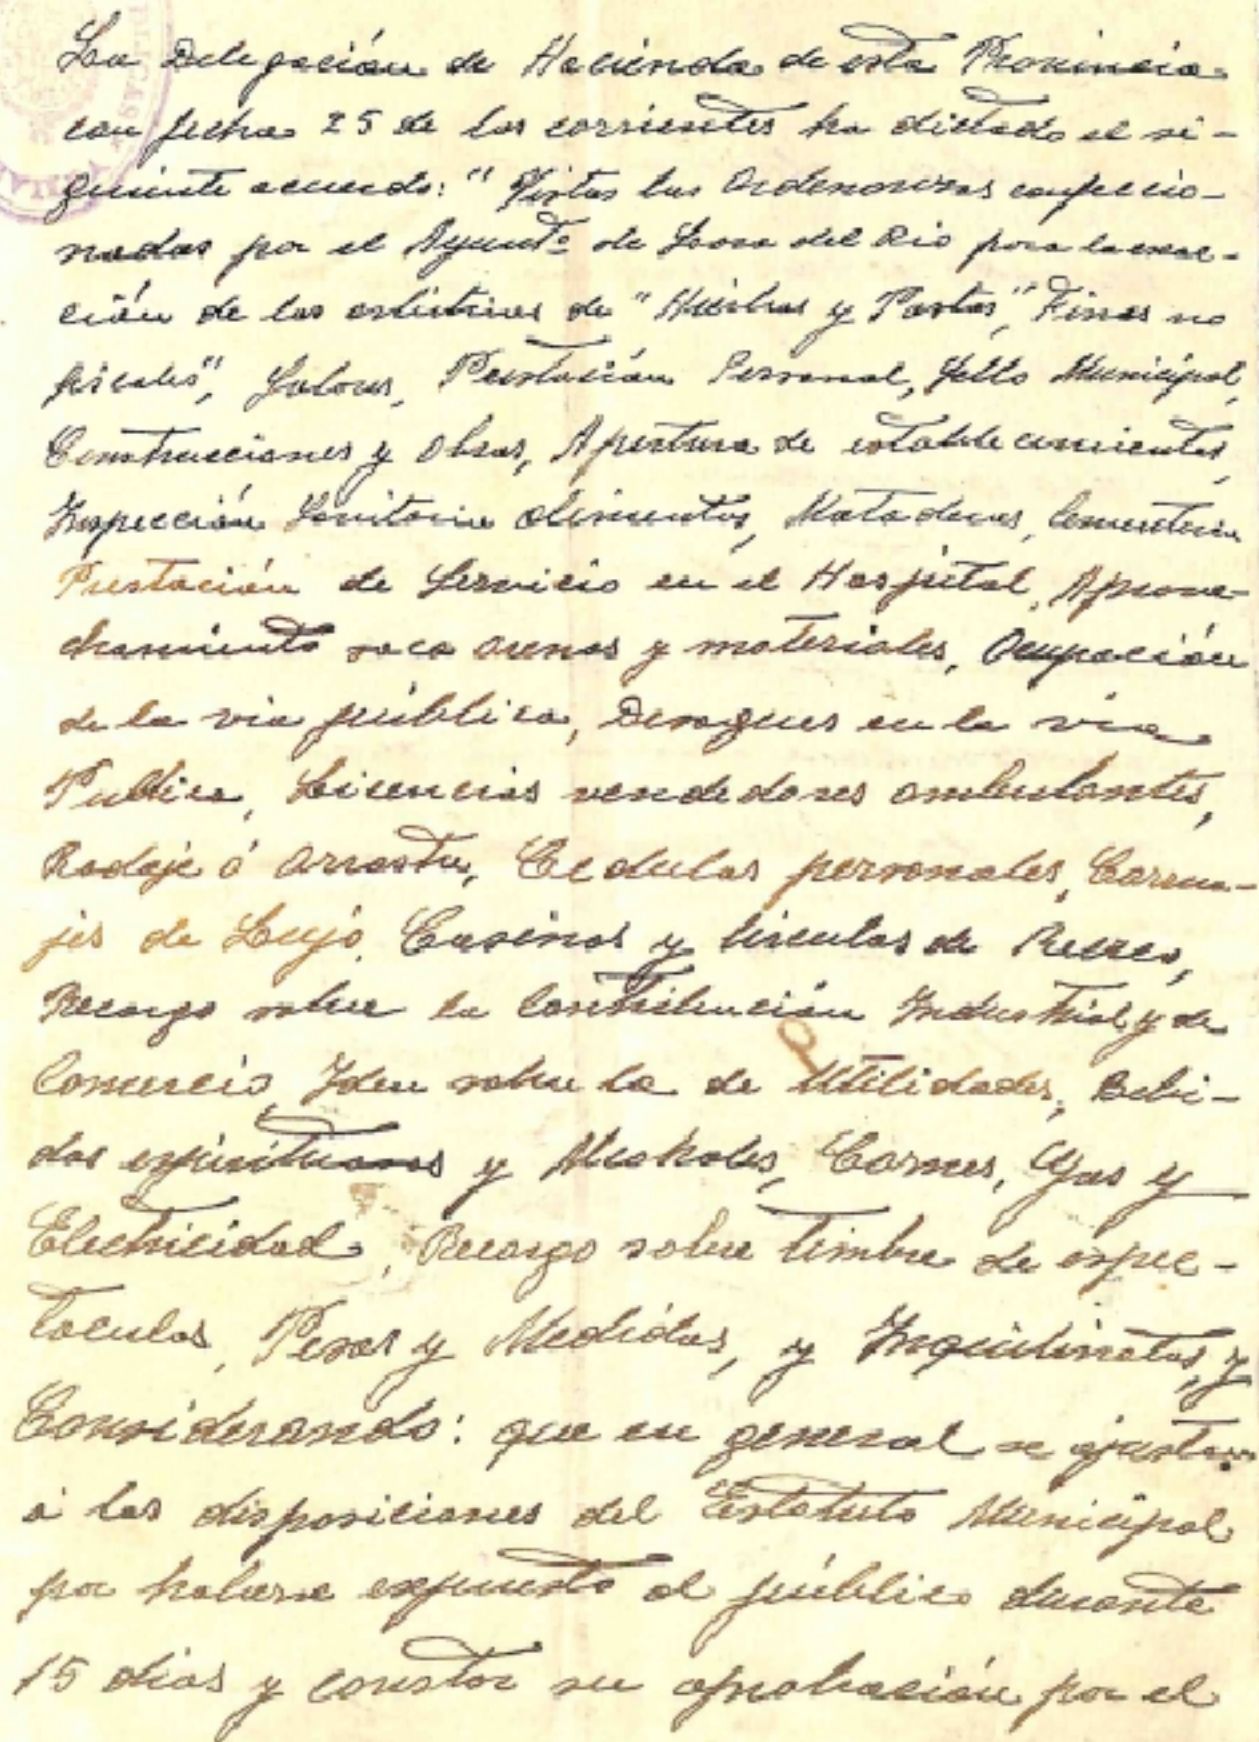 La Delegación de Hacienda de esta Provincia
con fecha 25 de los corrientes ha dictado el si-
guiente acuerdo: "Vistas las Ordenanzas confeccio-
nadas por el Ayuntº de Lora del Rio para la exac-
ción de los arbitrios de "Hierbas y Pastos", Fines no
fiscales", Solares, Prestación Personal, Sello Municipal,
Construcciones y Obras, Apertura de establecimientos,
Inspección Sanitaria alimentos, Mataderos, Cementerio
Prestación de Servicio en el Hospital, Aprove-
chamiento saca arenas y materiales, Ocupación
de la via pública, Desagues en la via
Publica, Licencias vendedores ambulantes,
Rodaje ó arrastre, Cedulas personales, Carrua-
jes de Lujo, Casinos y Circulos de Recreo,
Recargo sobre la Contribución Industrial y de
Comercio, Idem sobre la de Utilidades, Bebi-
das espirituosas y Alcoholes, Carnes, Gas y
Electricidad, Recargo sobre timbre de espec-
taculos, Pesas y Medidas, y Inquilinatos, y
Considerando: que en general se ajustan
á las disposiciones del Estatuto Municipal
por haberse expuesto al público durante
15 dias y constar su aprobación por el